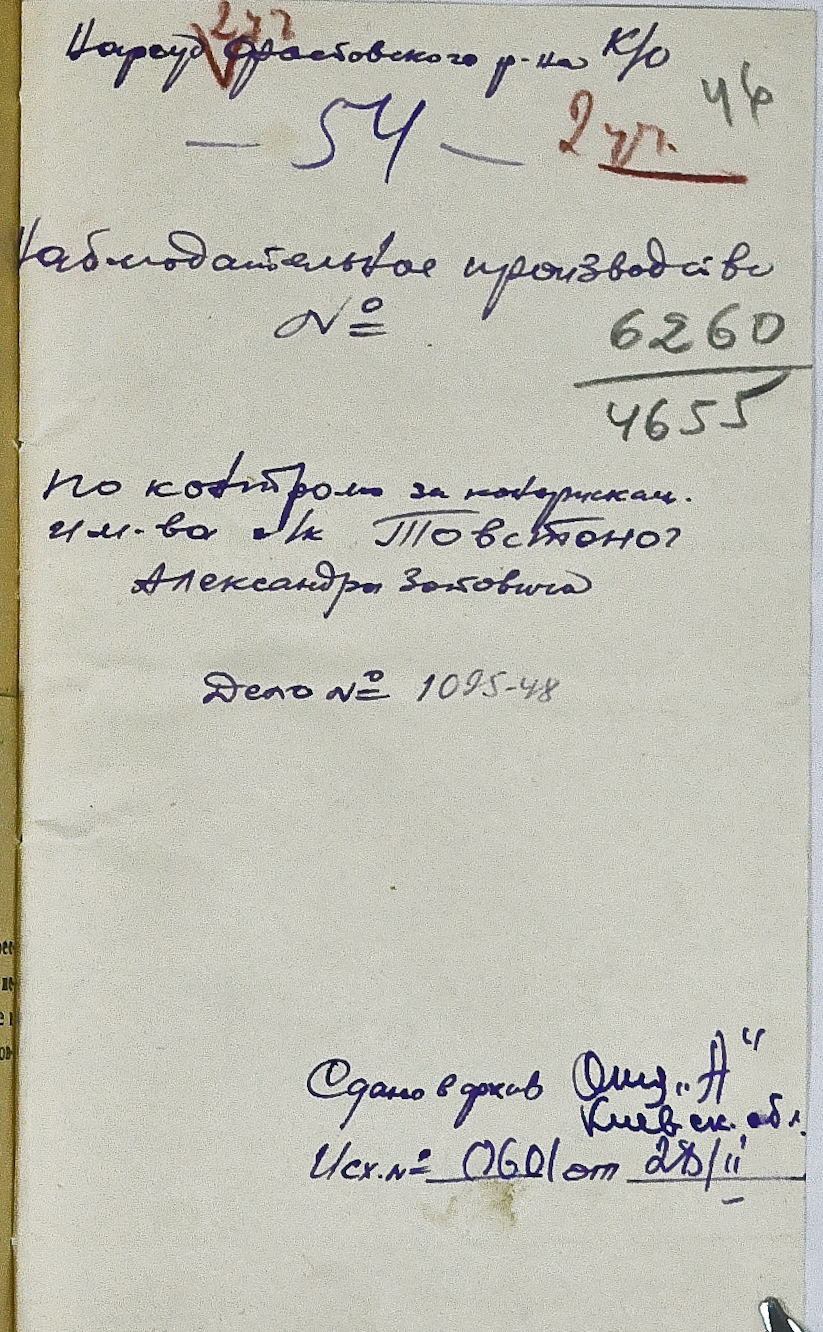 2 уч
Нарсуд Фастовского р-на К/о
— 54 — 2 уч.
Наблюдательное производство
№ 6260
4655
По контролю за
им-ва с/к Товстоног
Александра Зотовича
Дело № 1095-48
Сдано в архив Отд. "А"
Киевск. обл.
Исх. № 060/ от 28/II